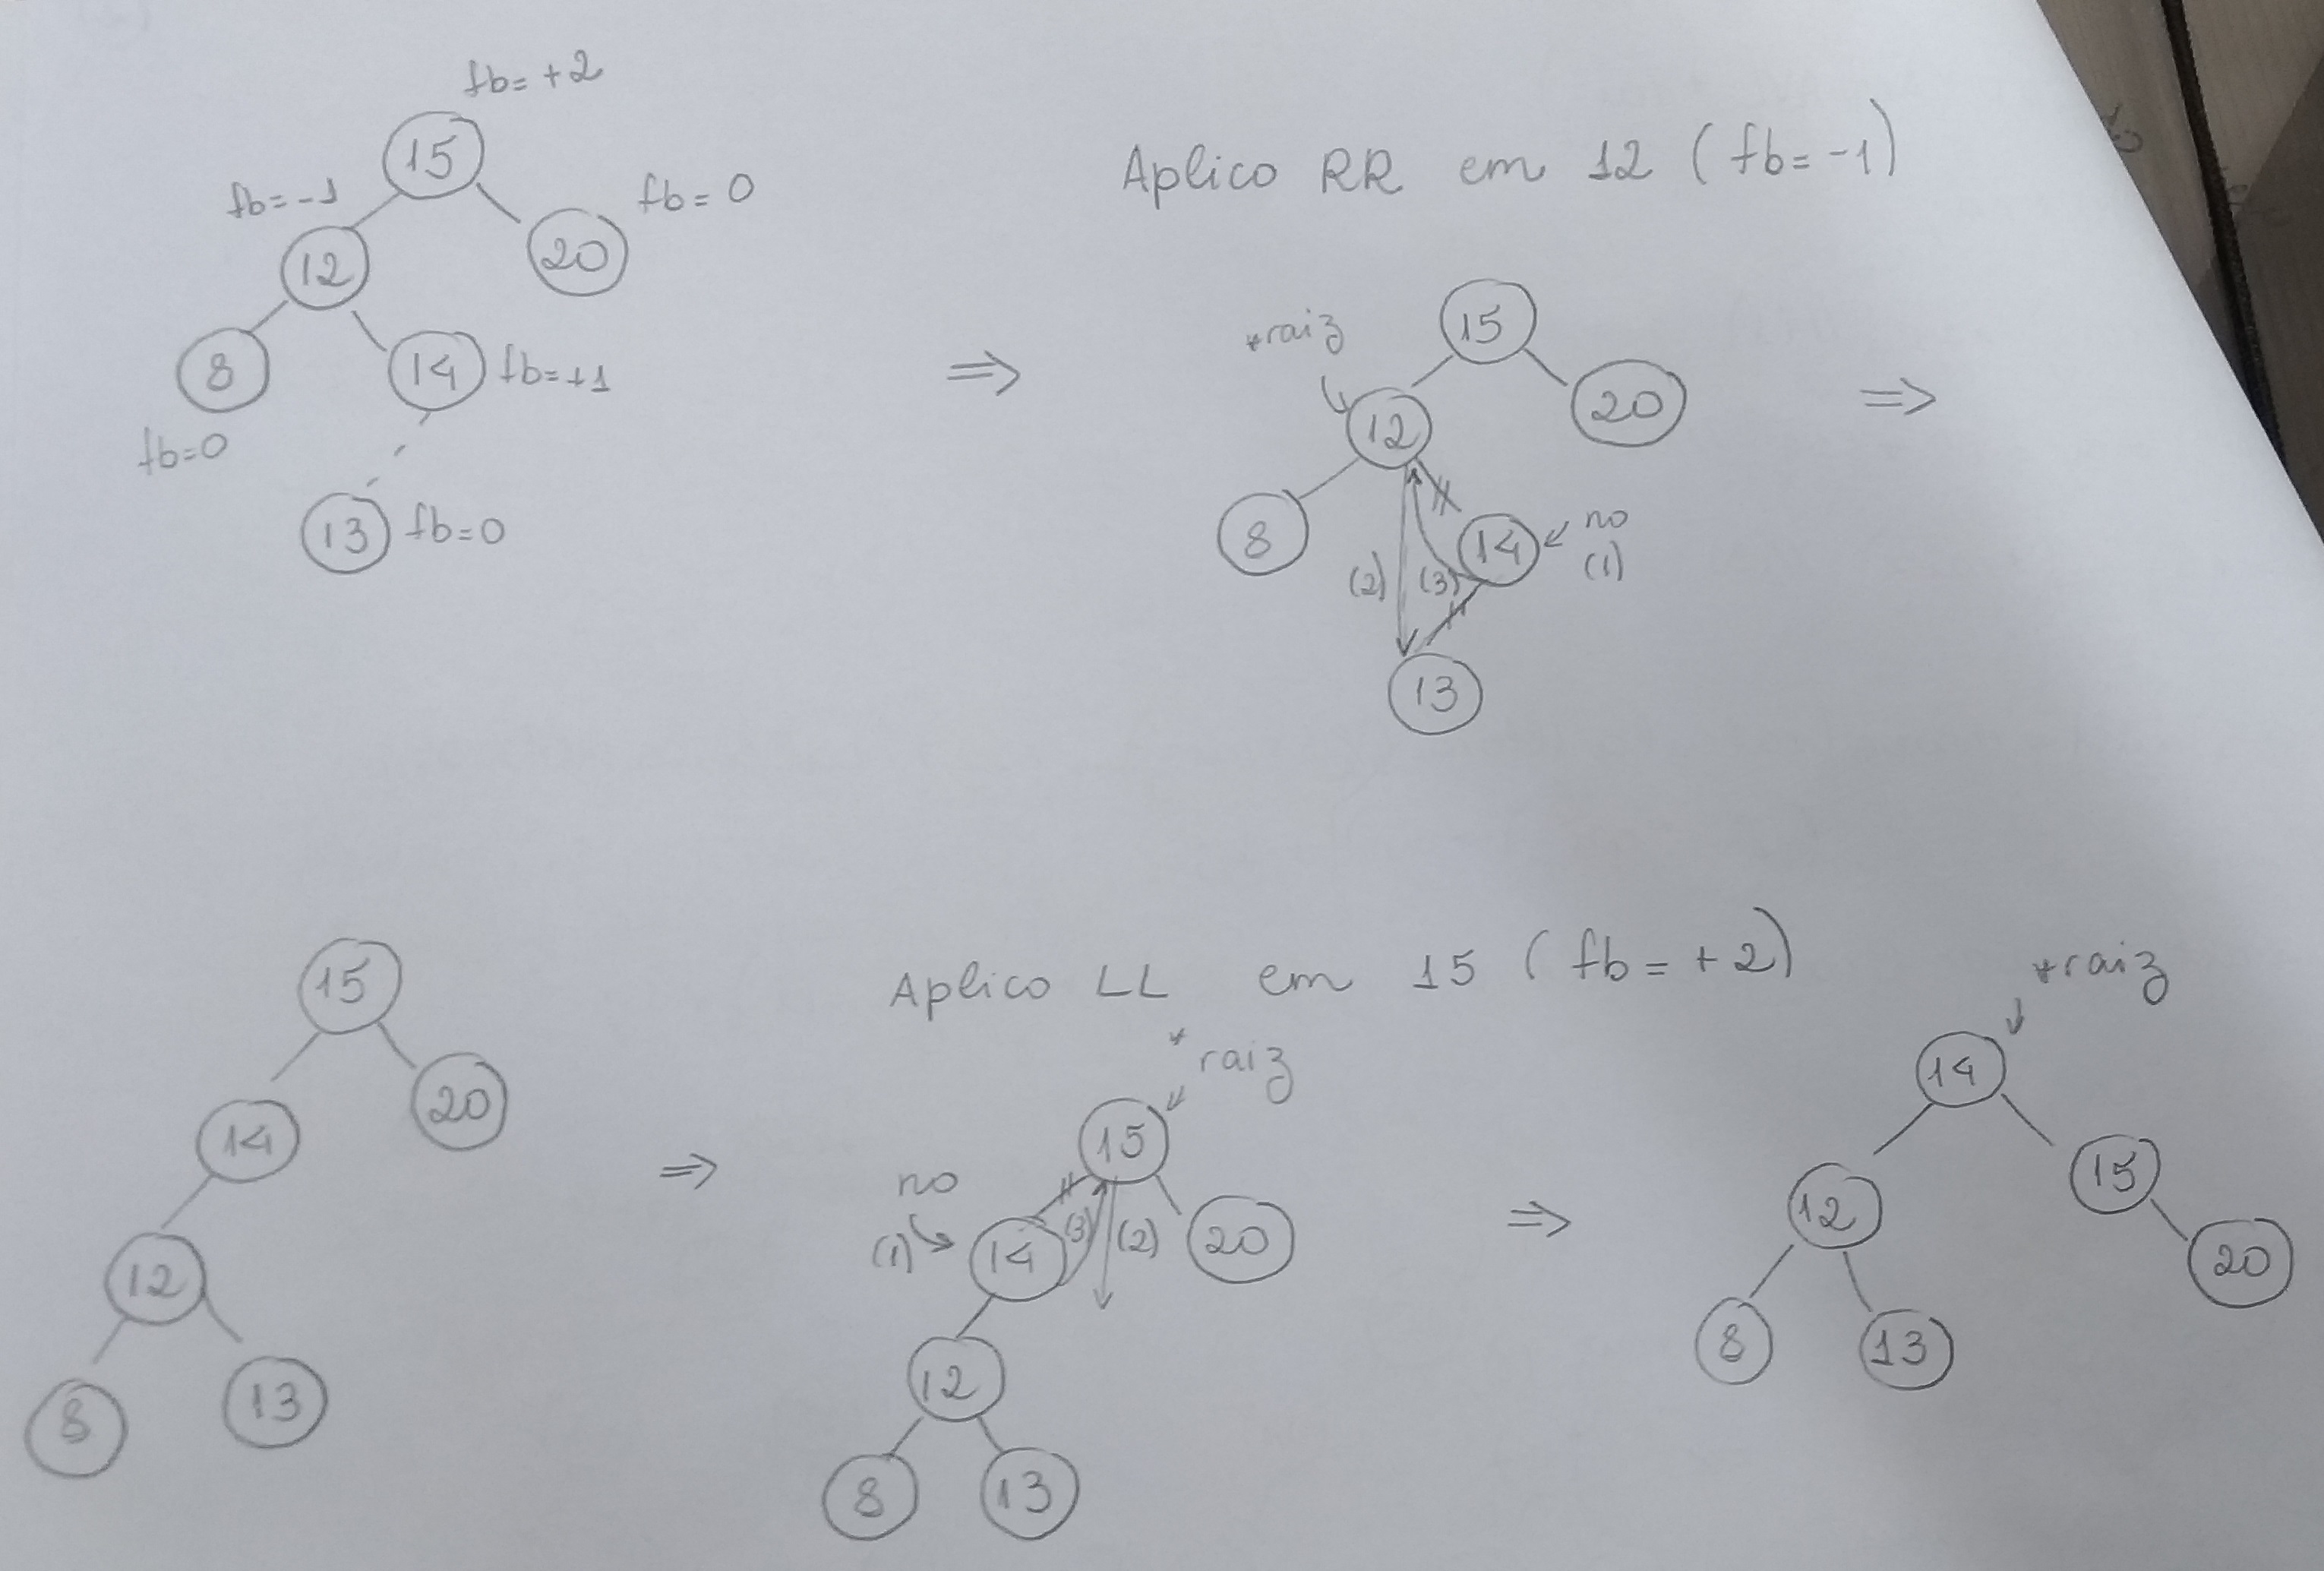 fb=+2
15
fb=-1
fb=0
12
20
8
14 fb=+1
fb=0
13 fb=0
⇒
Aplico RR em 12 (fb=-1)
*raiz
15
12
20
8
14
no
(1)
(2) (3)
13
⇒
15
14
20
12
8
13
⇒
Aplico LL em 15 (fb=+2)
*raiz
15
no
(1)
14
(3) (2)
20
12
8
13
⇒
*raiz
14
12
15
8
13
20